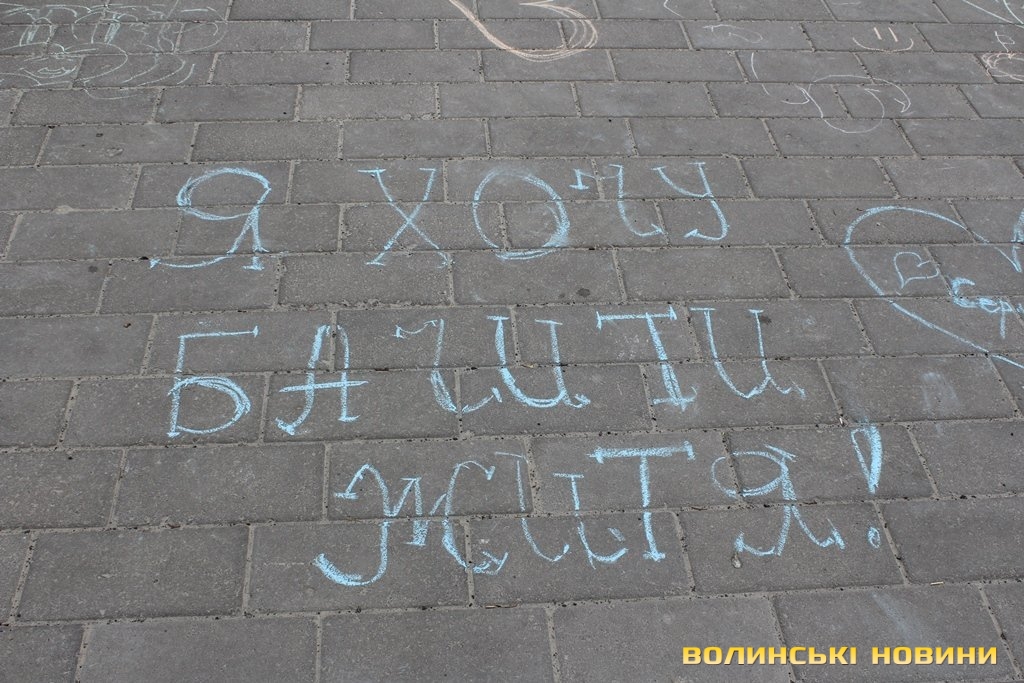 Я ХОЧУ
БАЧИТИ
ЖИТЯ!
ВОЛИНСЬКІ НОВИНИ